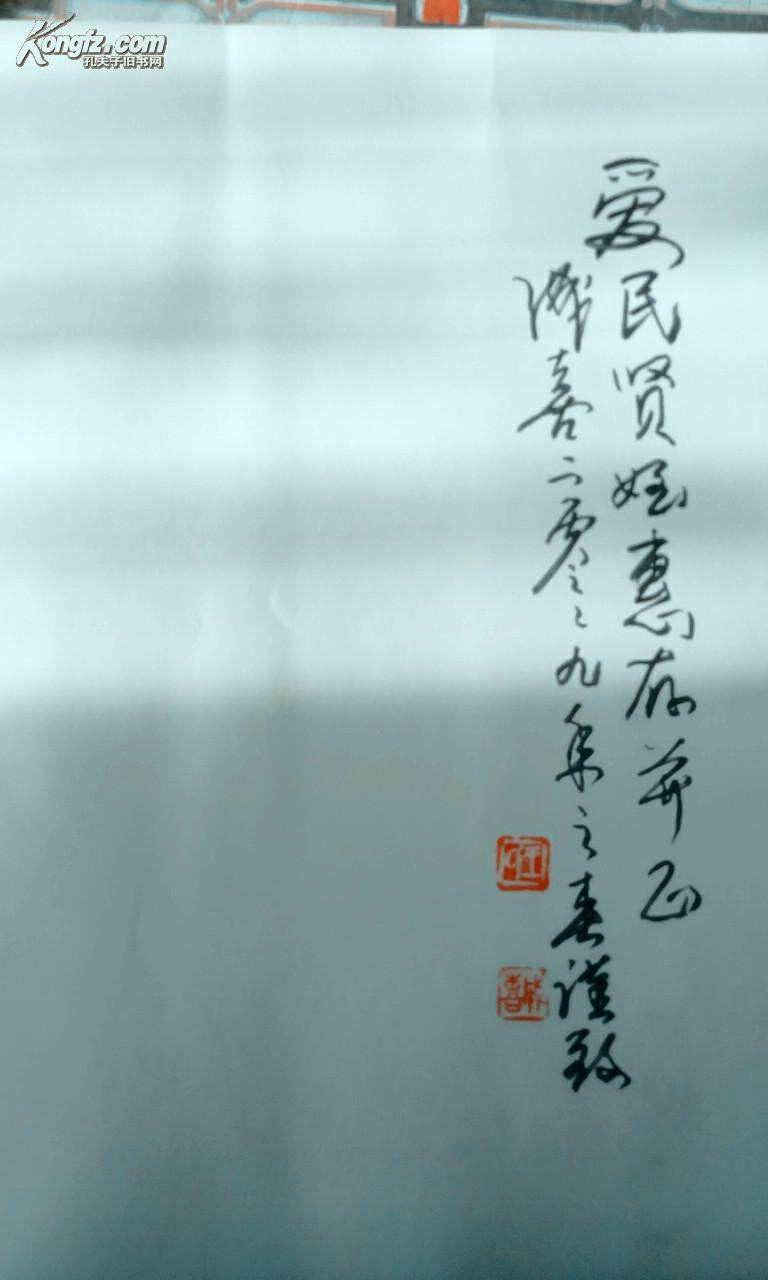 Kongfz.com
孔夫子旧书网
爱民贤侄惠存并正
诚喜二零零九年之春谨致
诚喜